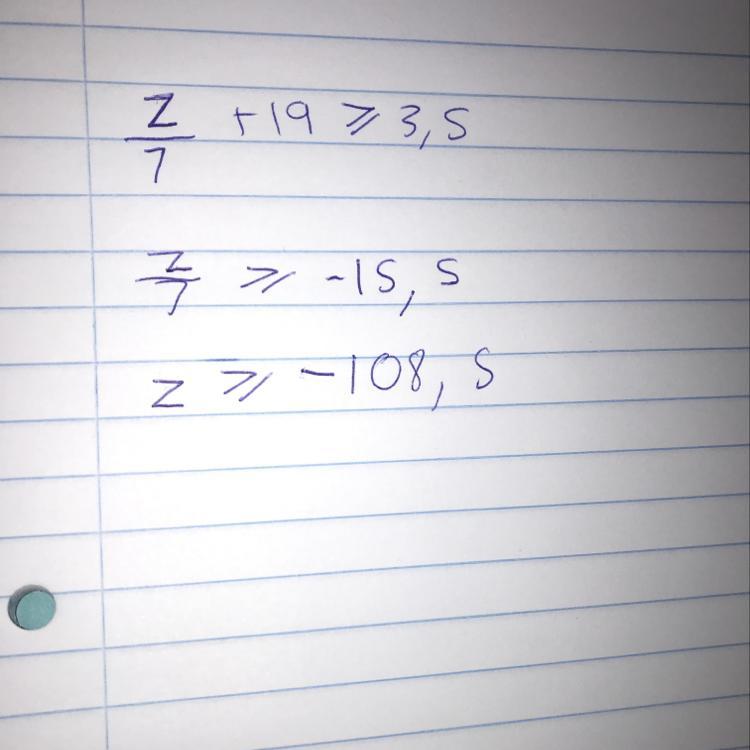 z/7 +19 ⩾ 3,5
z/7 ⩾ -15,5
z ⩾ -108,5